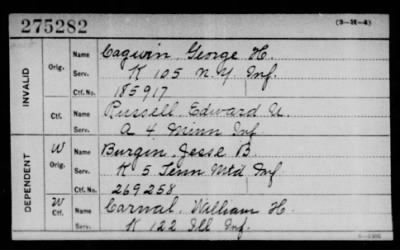 275282 (3-H-4)
INVALID
Orig. Name Cagwin, George H.
Serv. K 105 N.Y. Inf.
Ctf. No. 185917
Ctf. Name Russell, Edward U.
Serv. A 4 Minn Inf
DEPENDENT
W Orig. Name Burgin, Jesse B.
Serv. K 5 Tenn Mtd Inf
Ctf. No. 269258
W Ctf. Name Carnal, William H.
Serv. K 122 Ill Inf.